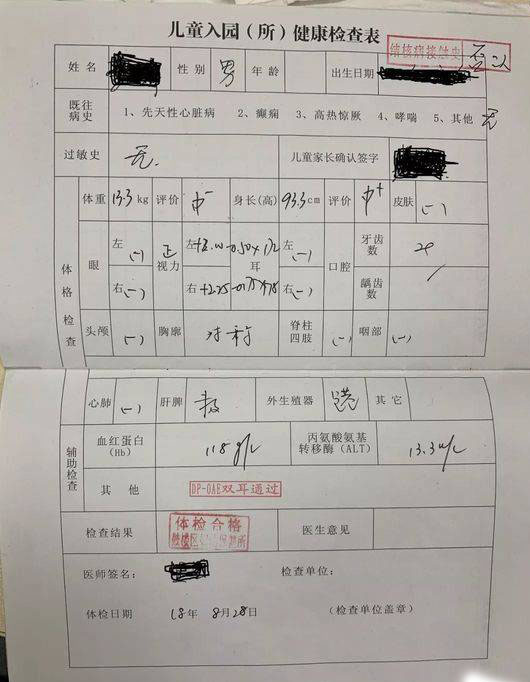 儿童入园（所）健康检查表
结核病接触史 否认
姓名 性别 男 年龄 出生日期
既往病史 1、先天性心脏病 2、癫痫 3、高热惊厥 4、哮喘 5、其他 无
过敏史 无. 儿童家长确认签字
体格检查
体重 13.3kg 评价 中⁻ 身长(高) 93.3cm 评价 中⁺ 皮肤 (-)
眼 左 (-) 正 视力 左 耳 左 (-) 口腔 牙齿数
右 (-) 右 右 (-) 龋齿数 /
头颅 (-) 胸廓 对称 脊柱四肢 (-) 咽部 (-)
心肺 (-) 肝脾 外生殖器 其它
辅助检查
血红蛋白（Hb） 118 g/L 丙氨酸氨基转移酶（ALT） 13.3 u/L
其他 DP-OAE双耳通过
检查结果 体检合格 医生意见
医师签名： 检查单位：
体检日期 18年 8月28日 (检查单位盖章)